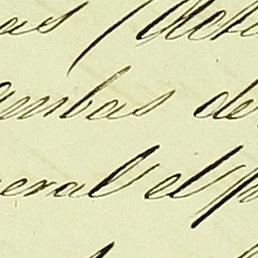 as (Octu
ambas de
neral el p